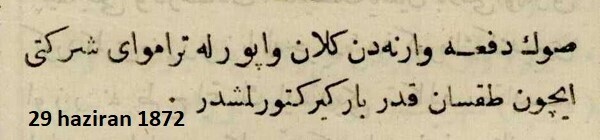 صوك دفعه وارنه‌دن كلان واپورله تراموای شركتی
ايچون طقسان قدر باركير كتورلمشدر ٠
29 haziran 1872